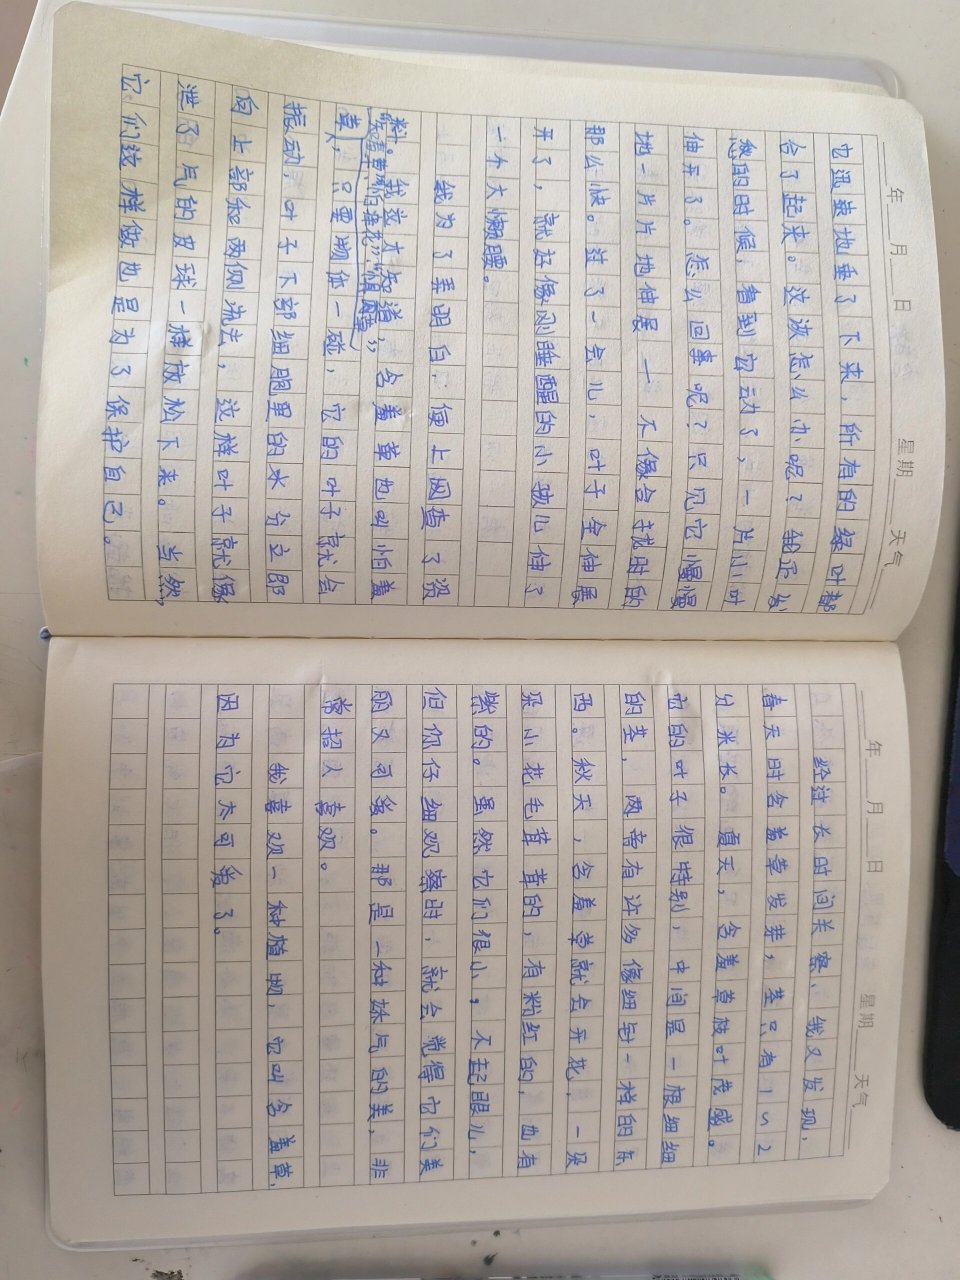 年 月 日 星期 天气
也迅速地垂了下来，所有的绿叶都
合了起来。这该怎么办呢？我正发
愁的时候，看到它动了，一片小叶
伸开了。怎么回事呢？只见它慢慢
地一片片地伸展一不像合拢时的
那么快。过了一会儿，叶子全伸展
开了，就好像刚睡醒的小孩儿伸了
一个大懒腰。
我为了弄明白，便上网查了资
料。我这才知道，含羞草也叫怕羞
草，只要物体一碰，它的叶子就会
振动，叶子下部细胞里的水分立即
向上部和两侧流去，这样叶子就像
泄了气的皮球一样放松下来。当然，
它们这样做也是为了保护自己。
年 月 日 星期 天气
经过长时间关察，我又发现，
春天时含羞草发芽，茎只有1~2
分米长。夏天，含羞草枝叶茂盛。
它的叶子很特别，中间是一根细细
的茎，两旁有许多像细针一样的东
西。秋天，含羞草就会开花，一朵
朵小花毛茸茸的，有粉红的，也有
紫的。虽然它们很小，不起眼儿，
但你仔细观察时，就会觉得它们美
丽又可爱。那是一种娇气的美，非
常招人喜欢。
我喜欢一种植物，它叫含羞草，
因为它太可爱了。